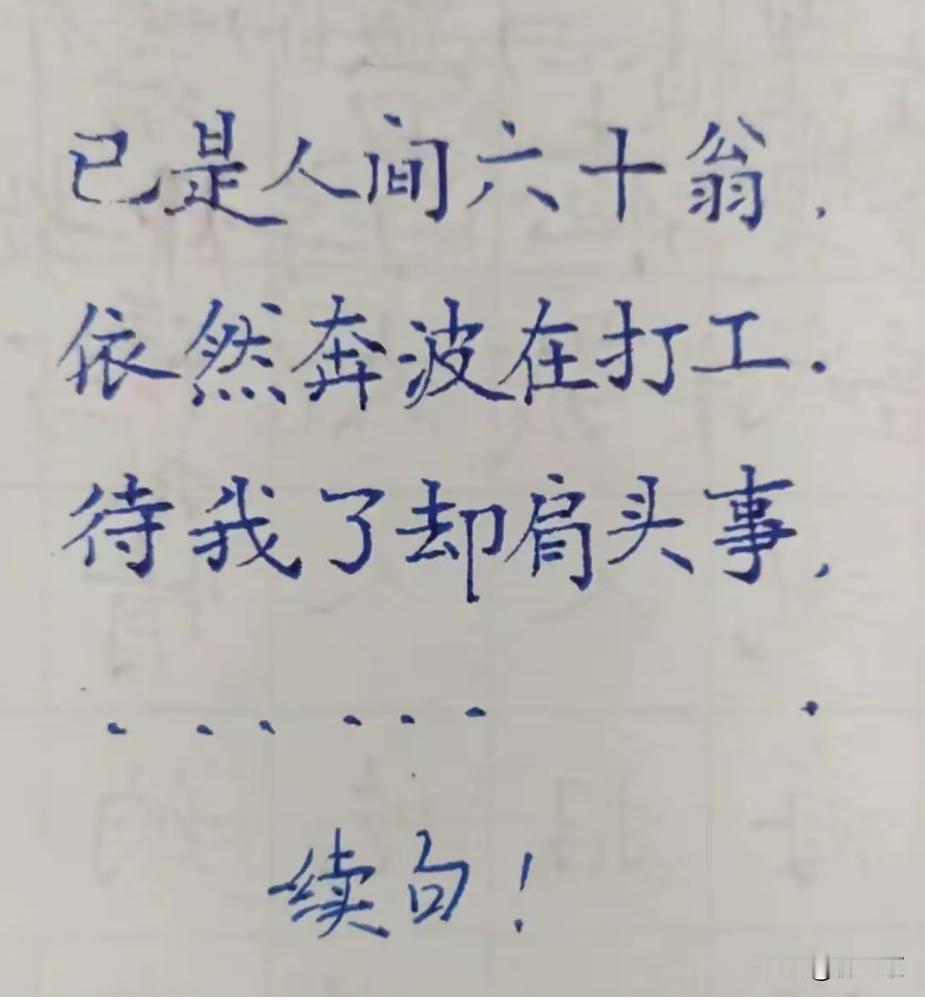 已是人间六十翁，
依然奔波在打工．
待我了却肩头事，
．．．．．． ．
续句！